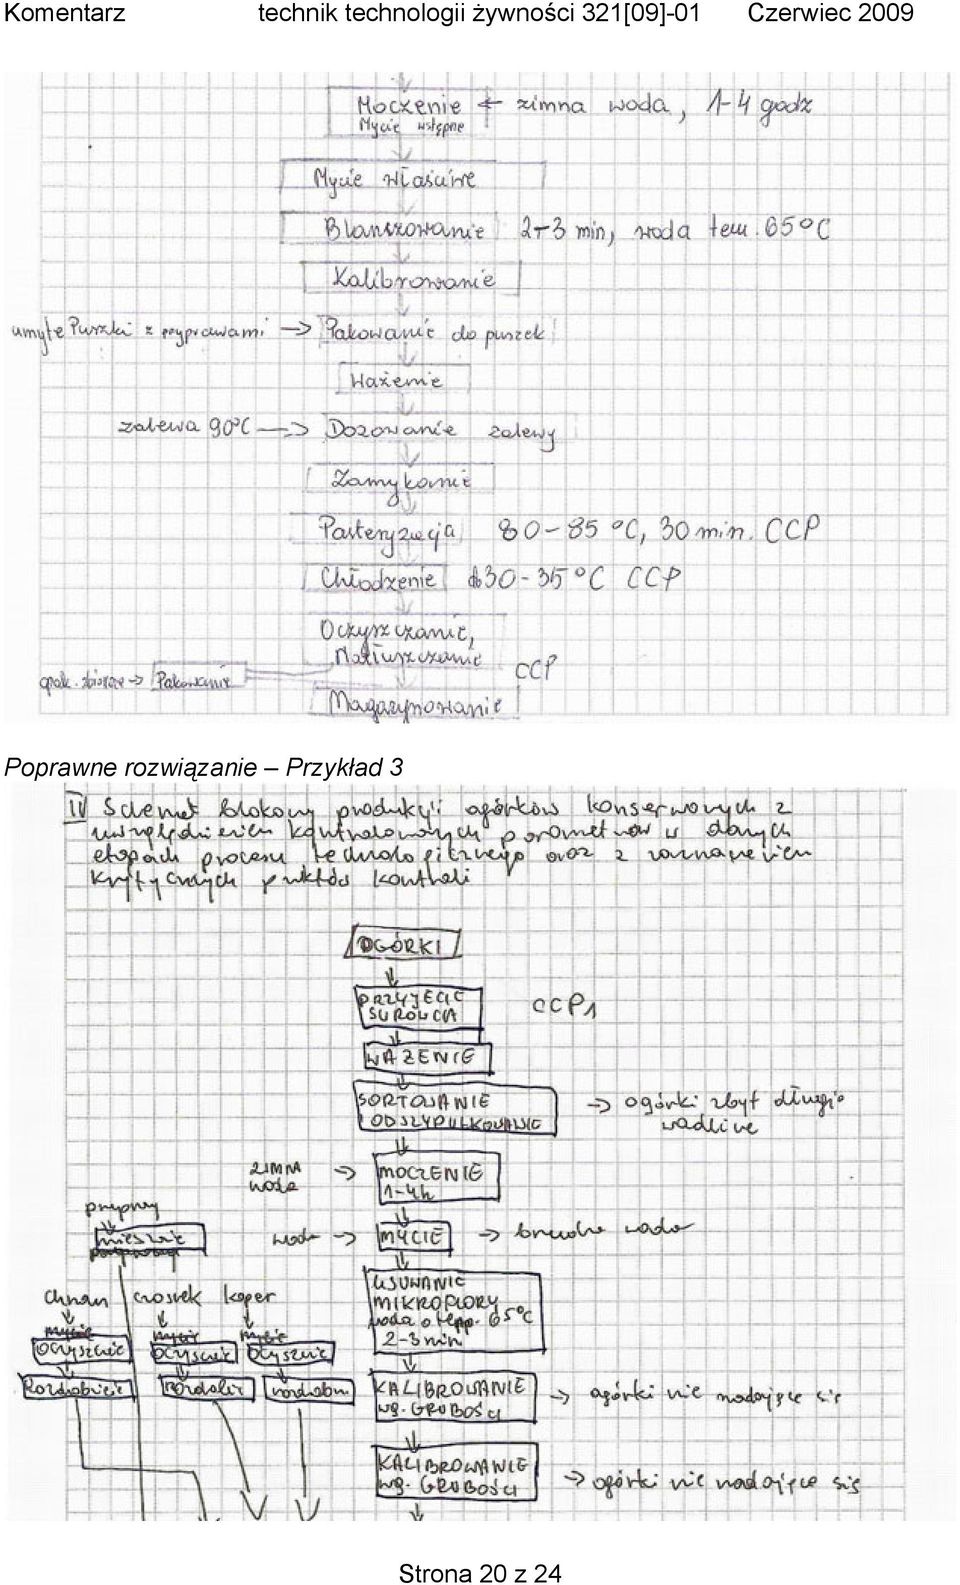 Komentarz technik technologii żywności 321[09]-01 Czerwiec 2009
Moczenie ← zimna woda, 1-4 godz
Mycie wstępne
Mycie właściwe
Blanszowanie 2-3 min, woda tem. 65°C
Kalibrowanie
umyte Puszki z przyprawami → Pakowanie do puszek
Ważenie
zalewa 90°C → Dozowanie zalewy
Zamykanie
Pasteryzacja 80-85 °C, 30 min. CCP
Chłodzenie do 30-35 °C CCP
Oczyszczanie,
Natłuszczanie CCP
opak. zbiorcze → Pakowanie
Magazynowanie
Poprawne rozwiązanie – Przykład 3
IV Schemat blokowy produkcji ogórków konserwowych z
uwzględnieniem kontrolowanych parametrów w danych
etapach procesu technologicznego oraz z zaznaczeniem
krytycznych punktów kontroli
OGÓRKI
PRZYJĘCIE CCP1
SUROWCA
WAŻENIE
SORTOWANIE → ogórki zbyt długie
ODSZYPUŁKOWANIE wadliwe
ZIMNA → MOCZENIE
woda 1-4h
przyprawy
mieszanie woda → MYCIE → brudna woda
USUWANIE
chrzan czosnek koper MIKROFLORY
mycie mycie mycie woda o temp. 65°C
oczyszcznie oczyszcznie oczyszcznie 2-3 min
rozdrabnianie rozdrabn KALIBROWANIE → ogórki nie nadające się
wg. GRUBOŚCI
KALIBROWANIE → ogórki nie nadające się
wg. GRUBOŚCI
Strona 20 z 24